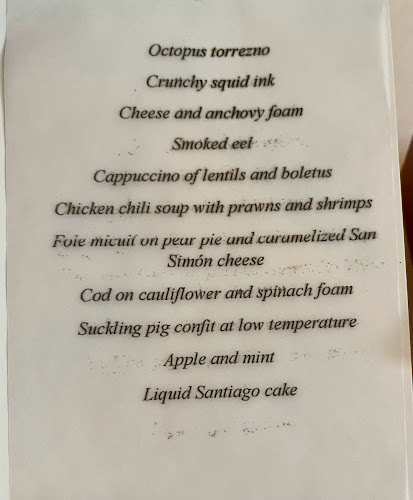 Octopus torrezno
Crunchy squid ink
Cheese and anchovy foam
Smoked eel
Cappuccino of lentils and boletus
Chicken chili soup with prawns and shrimps
Foie micuit on pear pie and caramelized San
Simón cheese
Cod on cauliflower and spinach foam
Suckling pig confit at low temperature
Apple and mint
Liquid Santiago cake